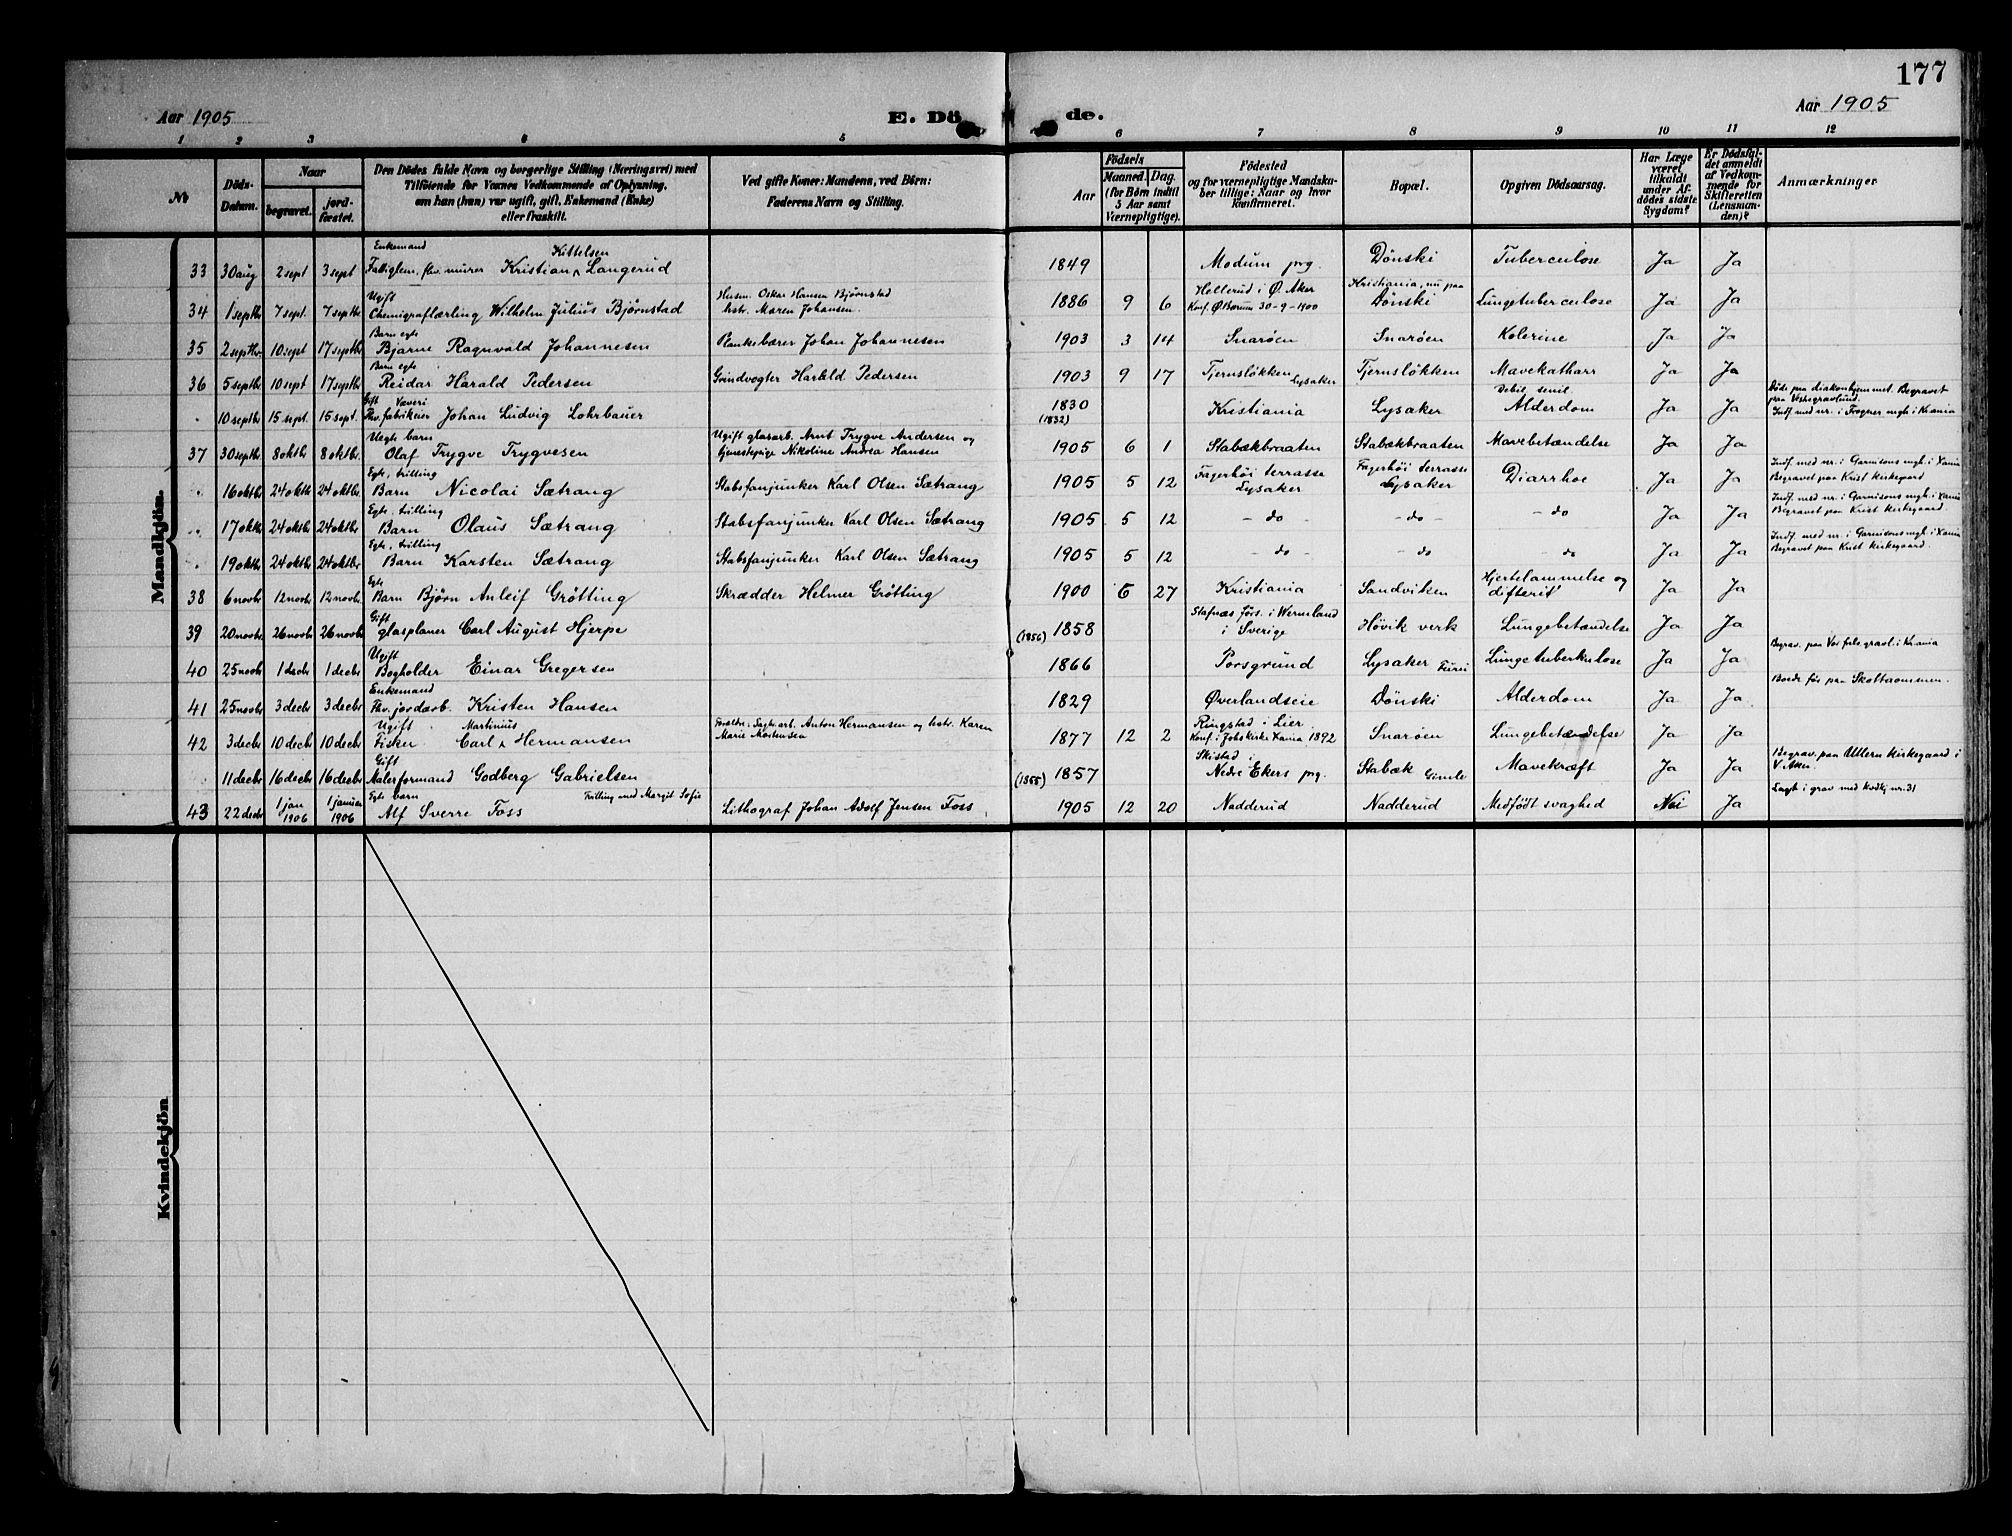 177
Aar 1905
E. Döde.
Aar 1905
1 2 3 4 5 6 7 8 9 10 11 12
No
Döds-Datum.
Naar
begravet.
jordfæstet.
Den Dödes fulde Navn og borgerlige Stilling (Næringsvei) med
Tilföiende for Voxnes Vedkommende af Oplysning,
om han (hun) var ugift, gift, Enkemand (Enke)
eller fraskilt.
Ved gifte Koner: Mandens, ved Börn:
Faderens Navn og Stilling.
Aar
Födsels
Maaned. Dag.
(for Börn indtil
5 Aar samt
Værnepligtige).
Födested
og for værnepligtige Mandskaber tillige: Naar og hvor
konfirmeret.
Bopæl.
Opgiven Dödsaarsag.
Har Læge
været
tilkaldt
under Afdödes sidste
Sygdom?
Er Dödsfaldet anmeldt
af Vedkommende for
Skifteretten
(Lensmanden)?
Anmærkninger
Mandkjön.
33 30 aug 2 sept 3 sept Enkemand Fattiglem, fhv. murer Kristian Kittelsen Langerud 1849 Modum prg. Dønski Tuberculose Ja Ja
34 1 septbr 7 sept. 7 septbr Ugift Chemigraflærling Wilhelm Julius Bjørnstad Husm. Oskar Hansen Bjørnstad hstr. Maren Johansen. 1886 9 6 Hellerud i Ø. Aker Konf. Ø Bærum 30-9-1900 Kristiania, nu paa Dønski Lungetuberculose Ja Ja
35 2 septbr. 10 sept 17 septbr Barn egte Bjarne Ragnvald Johannesen Plankebærer Johan Johannesen 1903 3 14 Snarøen Snarøen Kolerine Ja Ja
36 5 septbr 10 sept 17 septbr Barn egte Reidar Harald Pedersen Grindvogter Harald Pedersen 1903 9 17 Tjernsløkken Lysaker Tjernsløkken Mavekatharr Ja Ja
10 septbr 15 sept 15 sept. Gift Væveri Fhv. fabrikeier Johan Ludvig Lohrbauer 1830 (1832) Kristiania Lysaker Debil. senil Alderdom Ja Ja Døde paa diakonhjemmet. Begravet paa Vestregravlund. Indf med nr. i Frogner mgh i Krania
37 30 septbr 8 oktbr 8 oktbr. Uegte barn Olaf Trygve Trygvesen Ugift glasarb. Arnt Trygve Andersen og tjenestepige Nikoline Andrea Hansen 1905 6 1 Stabækbraaten Stabækbraaten Mavebetændelse Ja Ja
16 oktbr 24 oktbr 24 oktbr. Egte, trilling Barn Nicolai Sætrang Stabsfanjunker Karl Olsen Sætrang 1905 5 12 Fagerhøi terrasse Lysaker Fagerhøi terrasse Lysaker Diarrhoe Ja Ja Indf. med nr. i Garnisons mgh. i Xania Begravet paa Krist kirkegaard
17 oktbr 24 oktbr 24 oktbr. Egte, trilling Barn Olaus Sætrang Stabsfanjunker Karl Olsen Sætrang 1905 5 12 - do - - do - - do Ja Ja Indf. med nr. i Garnisons mgh. i Xania Begravet paa Krist kirkegaard.
19 oktbr 24 oktbr 24 oktbr Egte, trilling Barn Karsten Sætrang Stabsfanjunker Karl Olsen Sætrang 1905 5 12 - do - do - do Ja Ja Indf. med nr. i Garnisons mgh. i Xania Begravet paa Krist kirkegaard.
38 6 novbr 12 novbr 12 novbr. Egte Barn Bjørn Anleif Grøtting Skrædder Helmer Grøtting 1900 6 27 Kristiania Sandviken Hjertelammelse og difterit Ja Ja
39 20 novbr. 26 novbr 26 novbr. Gift glasplaner Carl August Hjerpe (1856) 1858 Stafnæs förs. i Wermland i Sverige Høvik verk Lungebetændelse Ja Ja
40 25 novbr 1 decbr 1 decbr Ugift Bogholder Einar Gregersen 1866 Porsgrund Lysaker Furu Lungetuberkulose Ja Ja Begrav. paa Vor frels. gravl. i Krania
41 25 novbr 3 decbr 3 decbr Enkemand Fhv. jordarb. Kristen Hansen 1829 Øverlandseie Dønski Alderdom Ja Ja Boede før paa Skottaommen.
42 3 decbr 10 decbr 10 decbr Ugift Fisker Carl Martinius Hermansen Foreldre: Sagtr.arb. Anton Hermansen og hstr. Karen Marie Mortensen 1877 12 2 Ringstad i Lier Konf. i Jakobskirke Xania 1892 Snarøen Lungebetændelse Ja Ja
11 decbr 16 decbr 16 decbr Gift Malerformand Godberg Gabrielsen (1855) 1857 Skistad i Nedre Ekers prg. Stabæk Gimle Mavekræft Ja Ja Begrav. paa Ullern kirkegaard i V Aker
43 22 decbr 1 jan 1906 1 januar 1906 Egte barn Alf Sverre Foss Tvilling med Margit Sofie Lithograf Johan Adolf Jensen Foss 1905 12 20 Nadderud Nadderud Medfødt svaghed Nei Ja Lagt i grav med kvdkj nr. 31
Kvindekjön